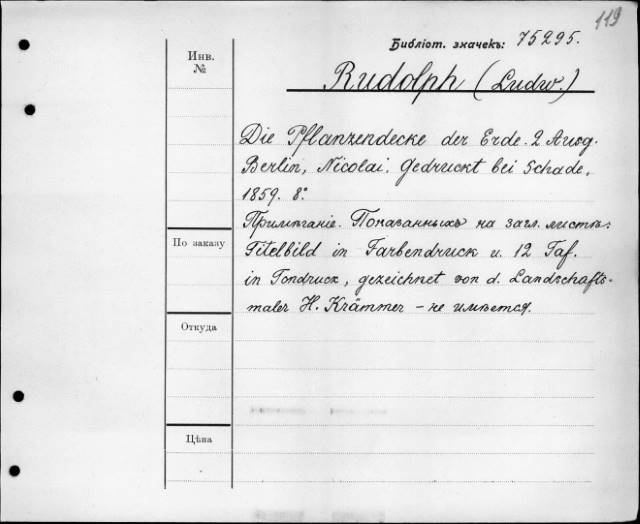 119
Библіот. значекъ: 75295.
Инв.
№
Rudolph (Ludw.)
Die Pflanzendecke der Erde. 2 Ausg.
Berlin, Nicolai. Gedruckt bei Schade,
1859. 8º.
Примѣчаніе. Показанныхъ на загл. листѣ:
По заказу
Titelbild in Farbendruck u. 12 Taf.
in Tondruck, gezeichnet von d. Landschafts-
maler H. Krämmer – не имѣется.
Откуда
Цѣна